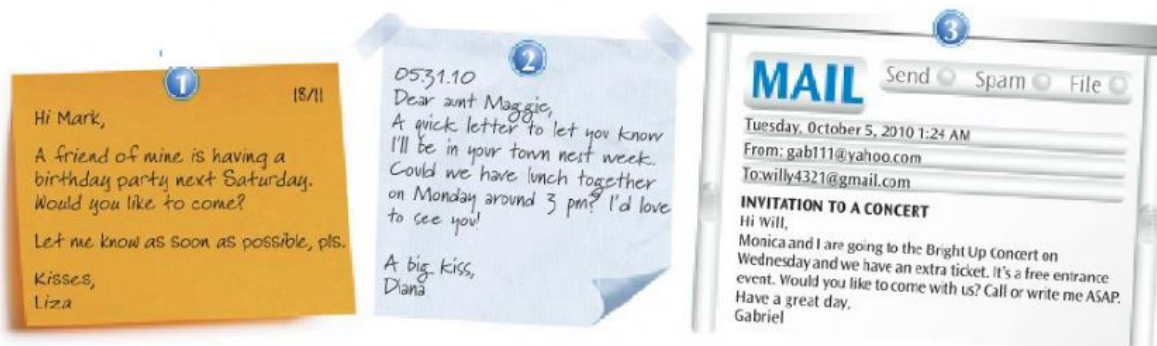 1
18/11
Hi Mark,
A friend of mine is having a
birthday party next Saturday.
Would you like to come?
Let me know as soon as possible, pls.
Kisses,
Liza
2
05.31.10
Dear aunt Maggie,
A quick letter to let you know
I'll be in your town nest week.
Could we have lunch together
on Monday around 3 pm? I'd love
to see you!
A big kiss,
Diana
3
MAIL Send Spam File
Tuesday, October 5, 2010 1:24 AM
From: gab111@yahoo.com
To:willy4321@gmail.com
INVITATION TO A CONCERT
Hi Will,
Monica and I are going to the Bright Up Concert on
Wednesday and we have an extra ticket. It's a free entrance
event. Would you like to come with us? Call or write me ASAP.
Have a great day,
Gabriel